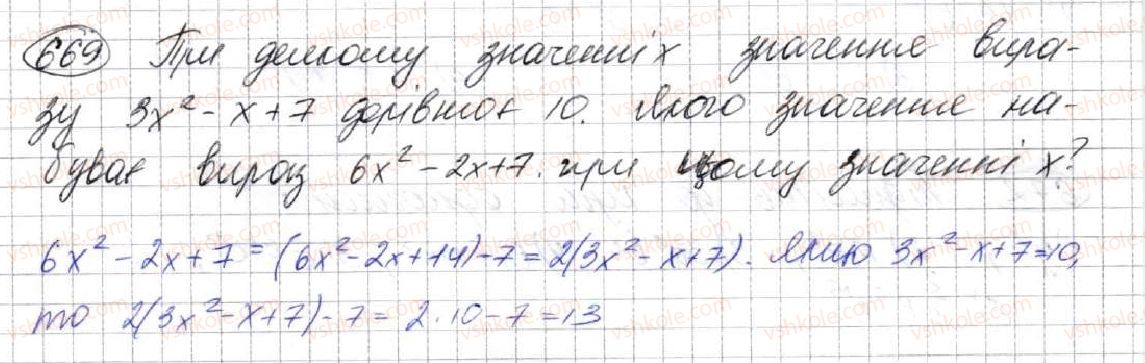 669 При деякому значенні x значення вира-
зу 3x² - x + 7 дорівнює 10. Якого значення на-
буває вираз 6x² - 2x + 7 при цьому значенні x?
6x² - 2x + 7 = (6x² - 2x + 14) - 7 = 2(3x² - x + 7). Якщо 3x² - x + 7 = 10,
то 2(3x² - x + 7) - 7 = 2 · 10 - 7 = 13